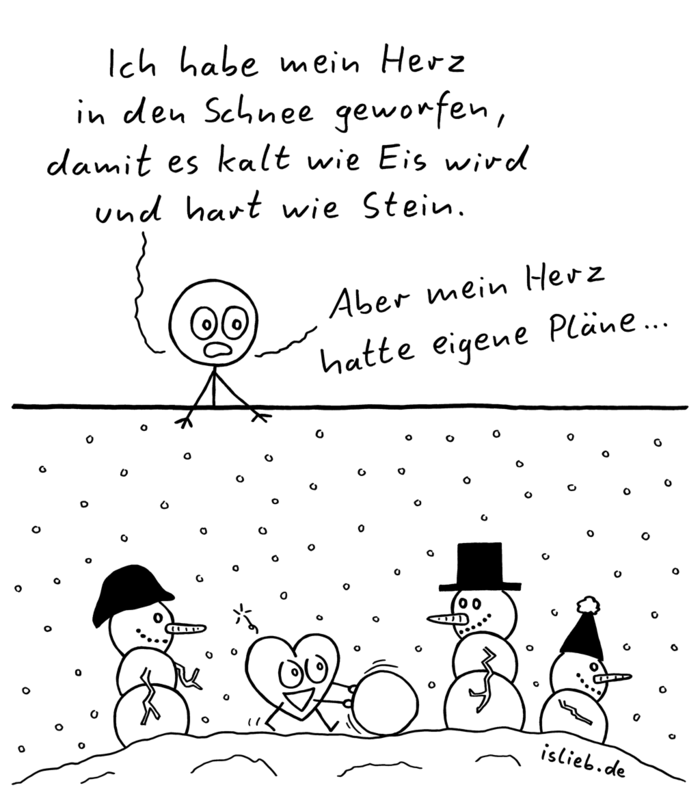 Ich habe mein Herz
in den Schnee geworfen,
damit es kalt wie Eis wird
und hart wie Stein.
Aber mein Herz
hatte eigene Pläne...
islieb.de